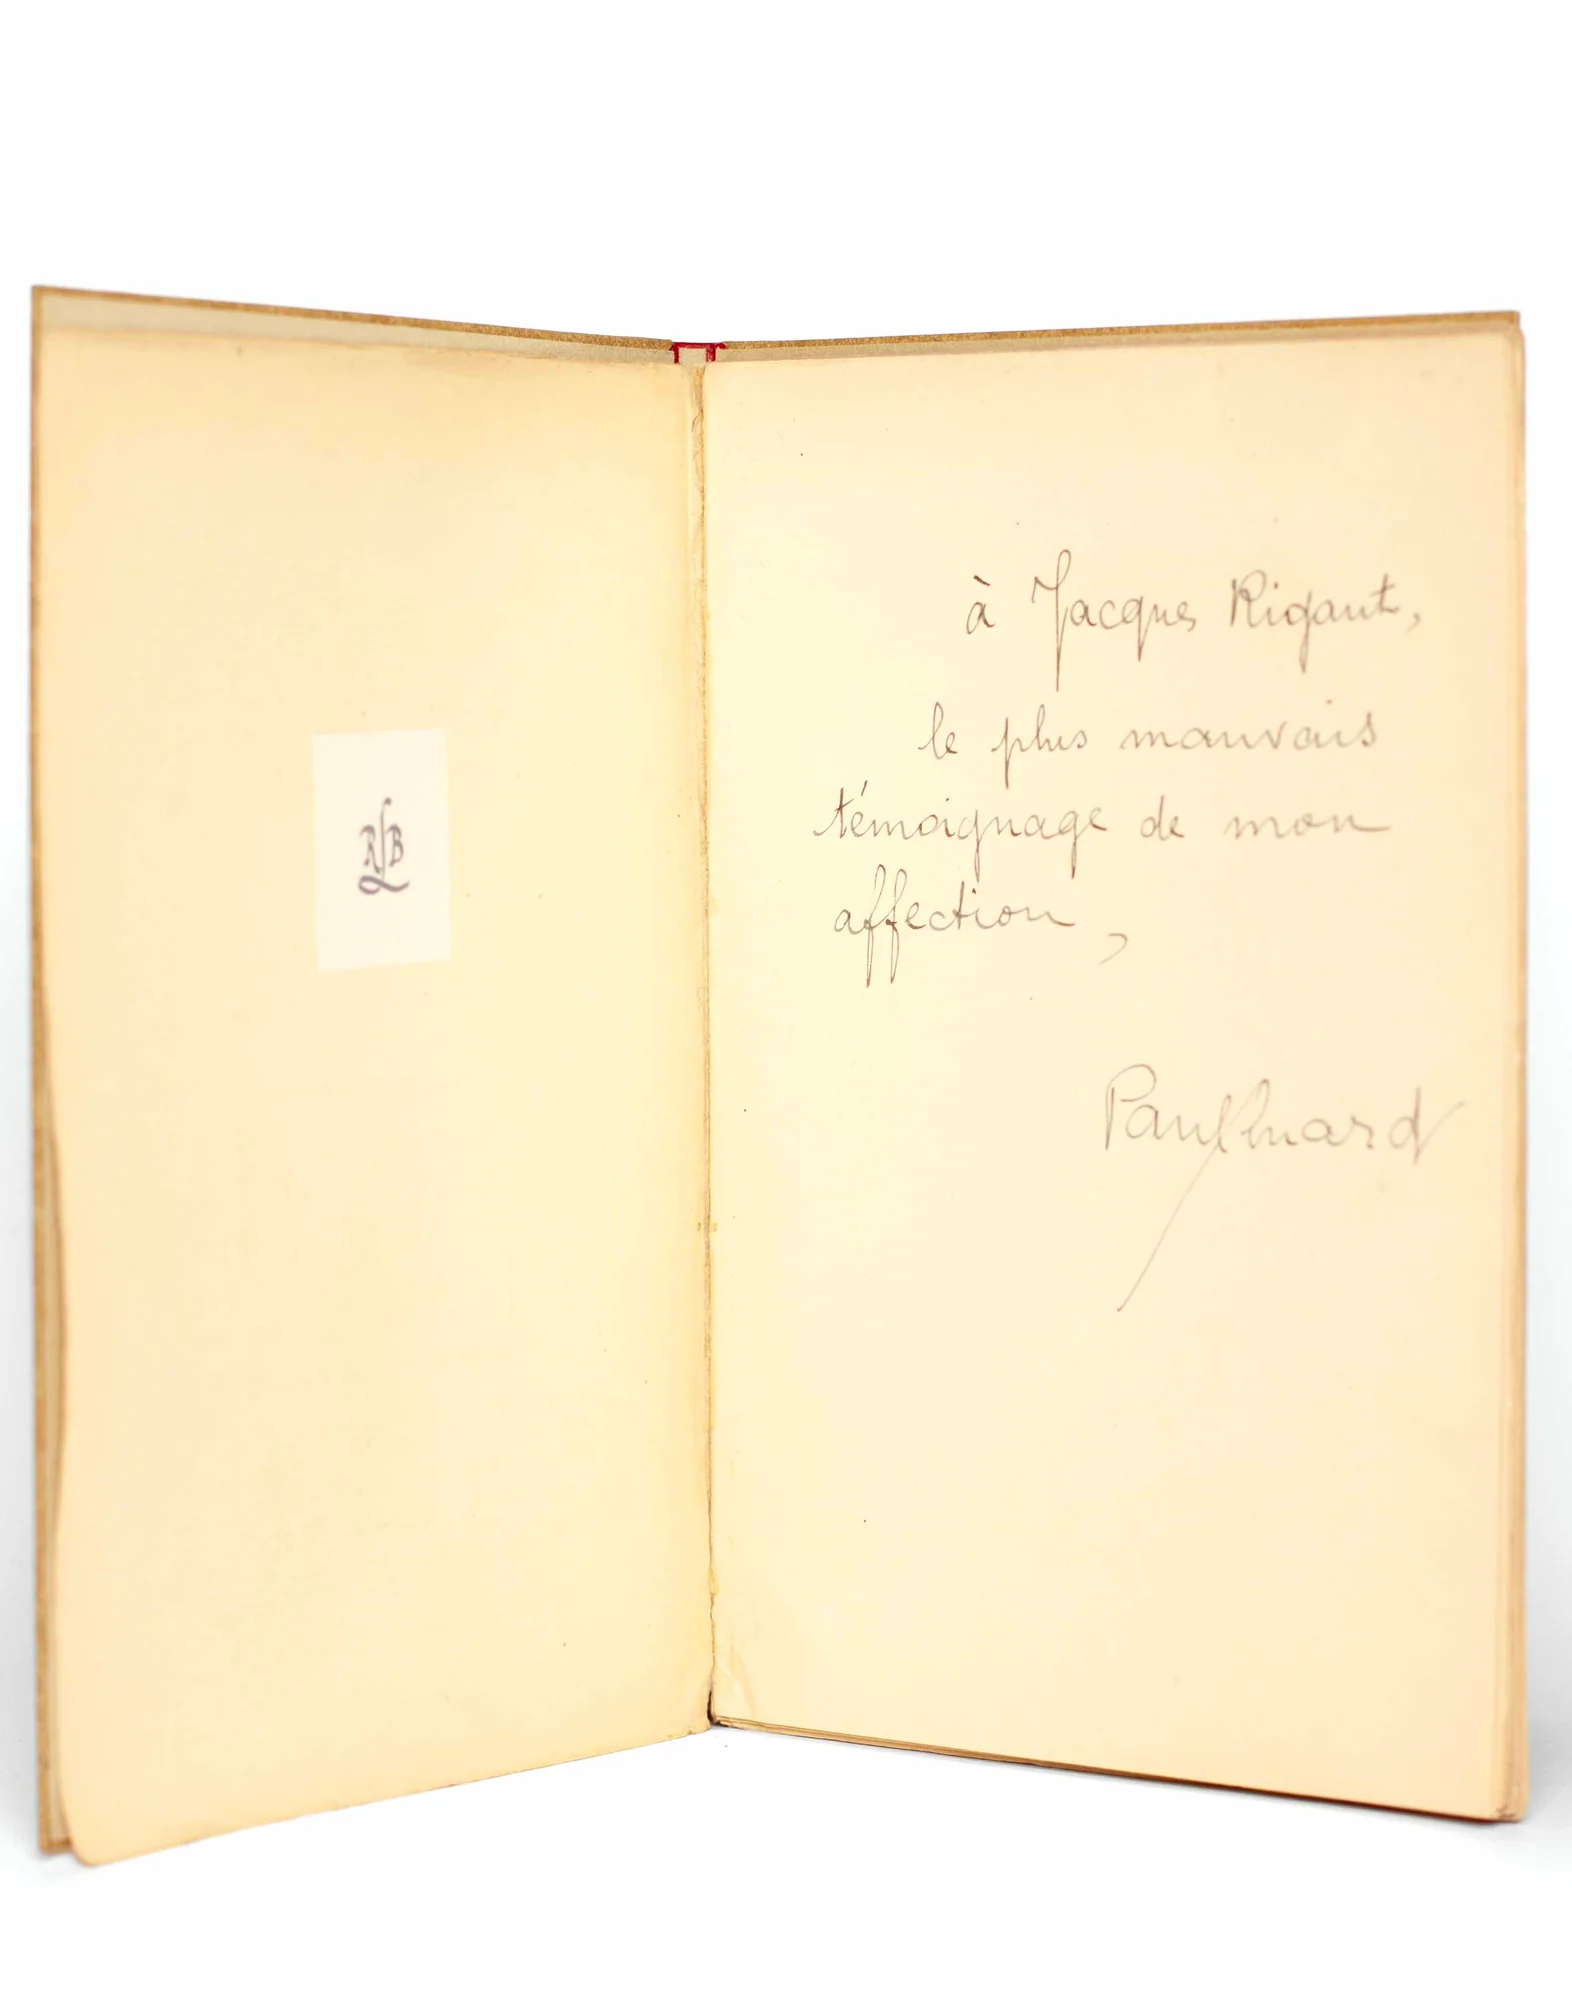 RLB
à Jacques Rigaut,
le plus mauvais
témoignage de mon
affection,
Paul Eluard